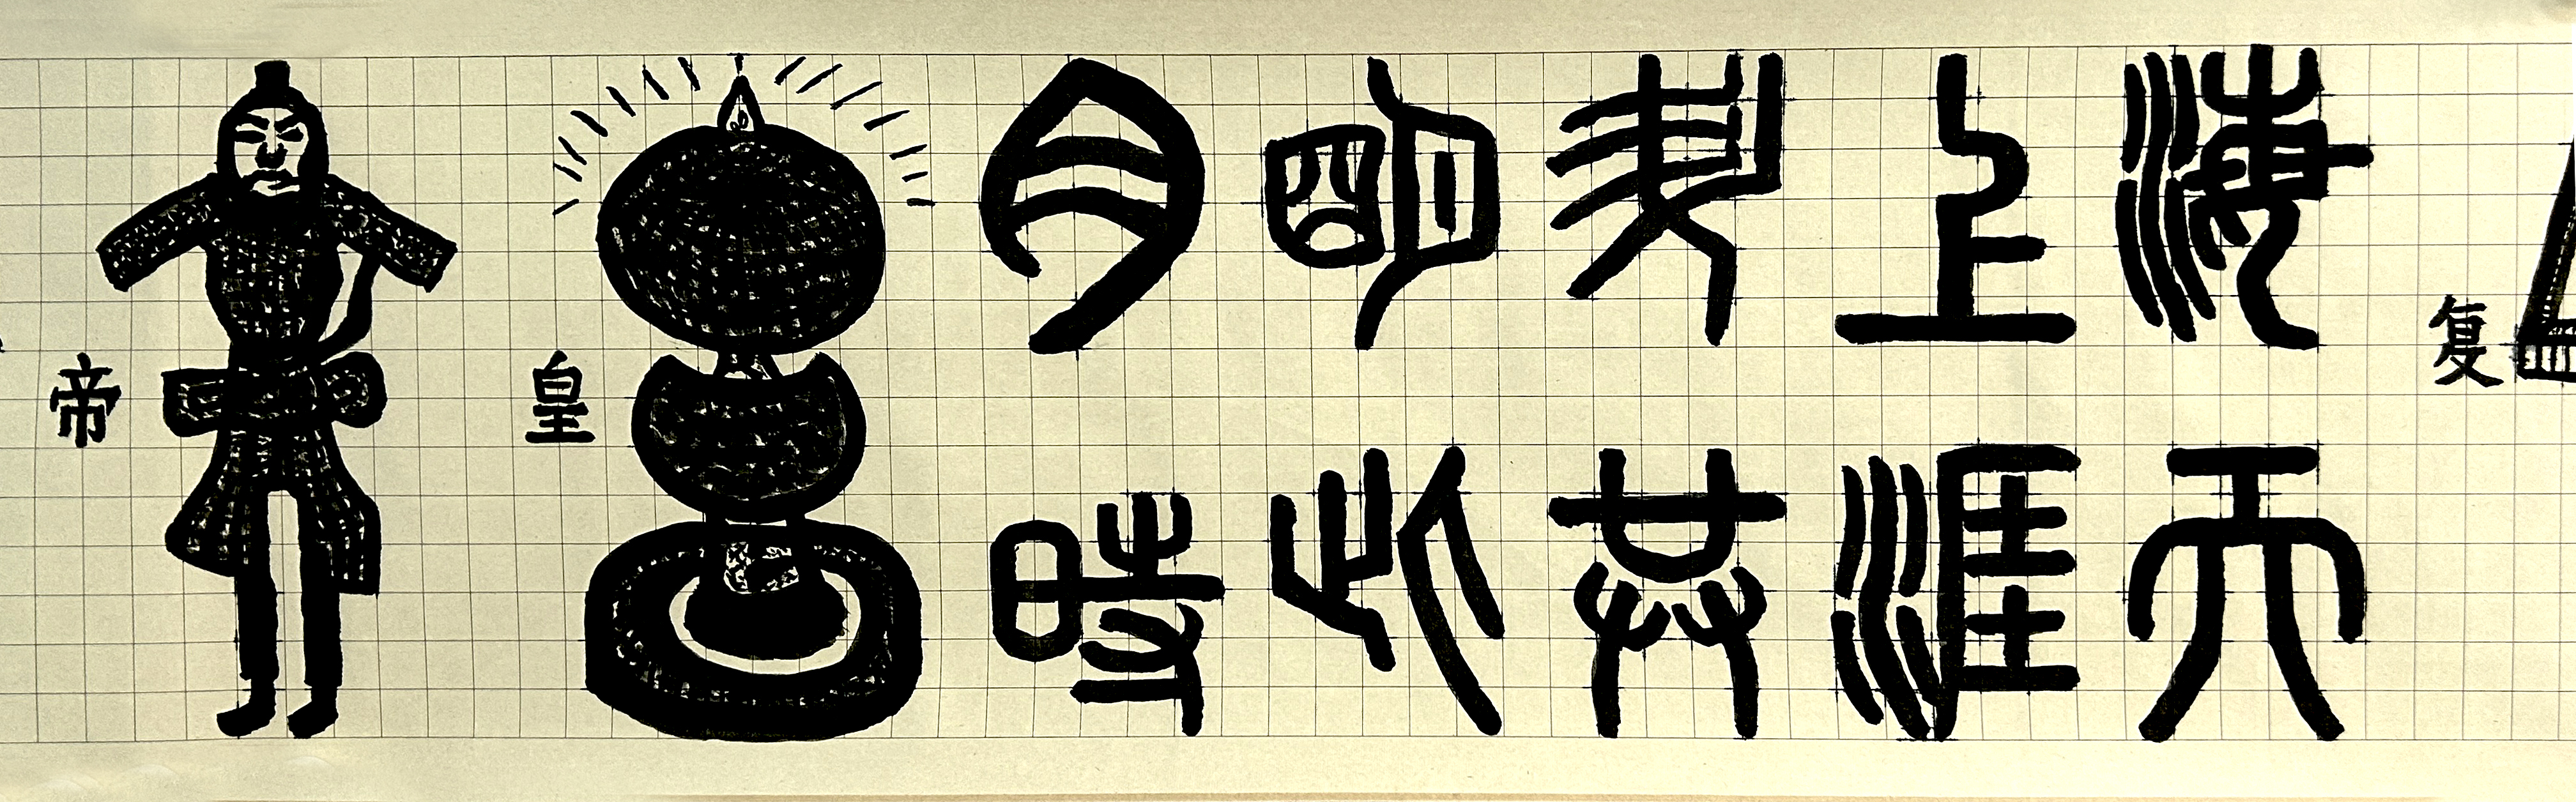 复
海上升明月
天涯共此時
皇
帝